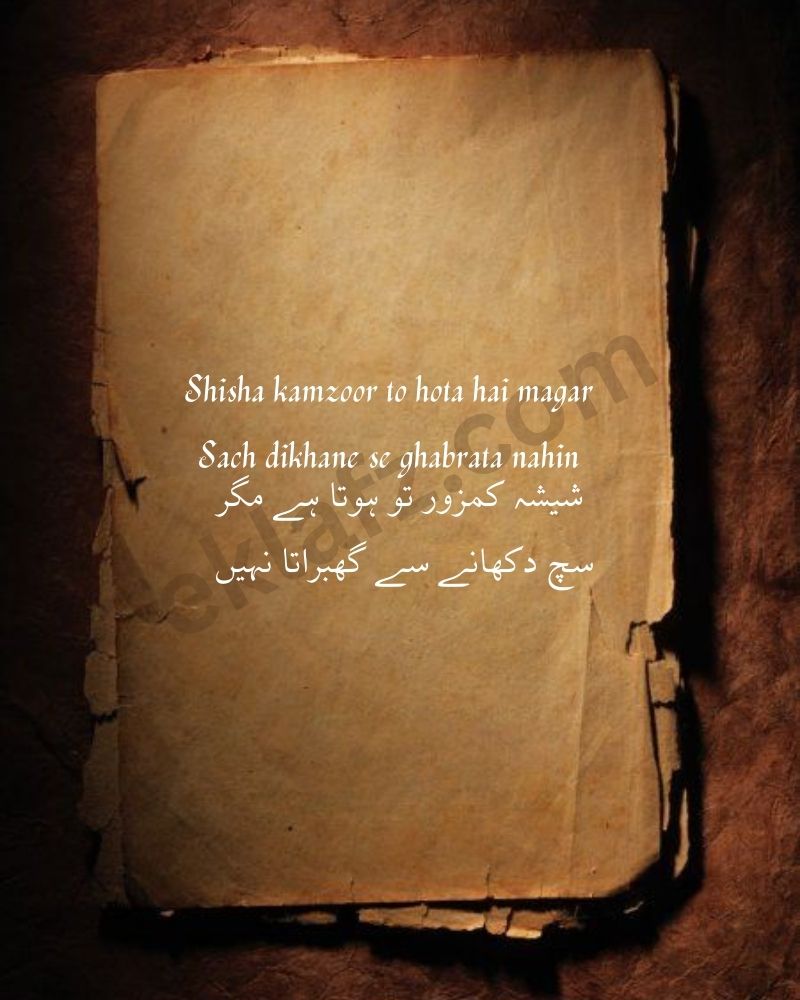 Shisha kamzoor to hota hai magar
Sach dikhane se ghabrata nahin
شیشہ کمزور تو ہوتا ہے مگر
سچ دکھانے سے گھبراتا نہیں
eklafz.com